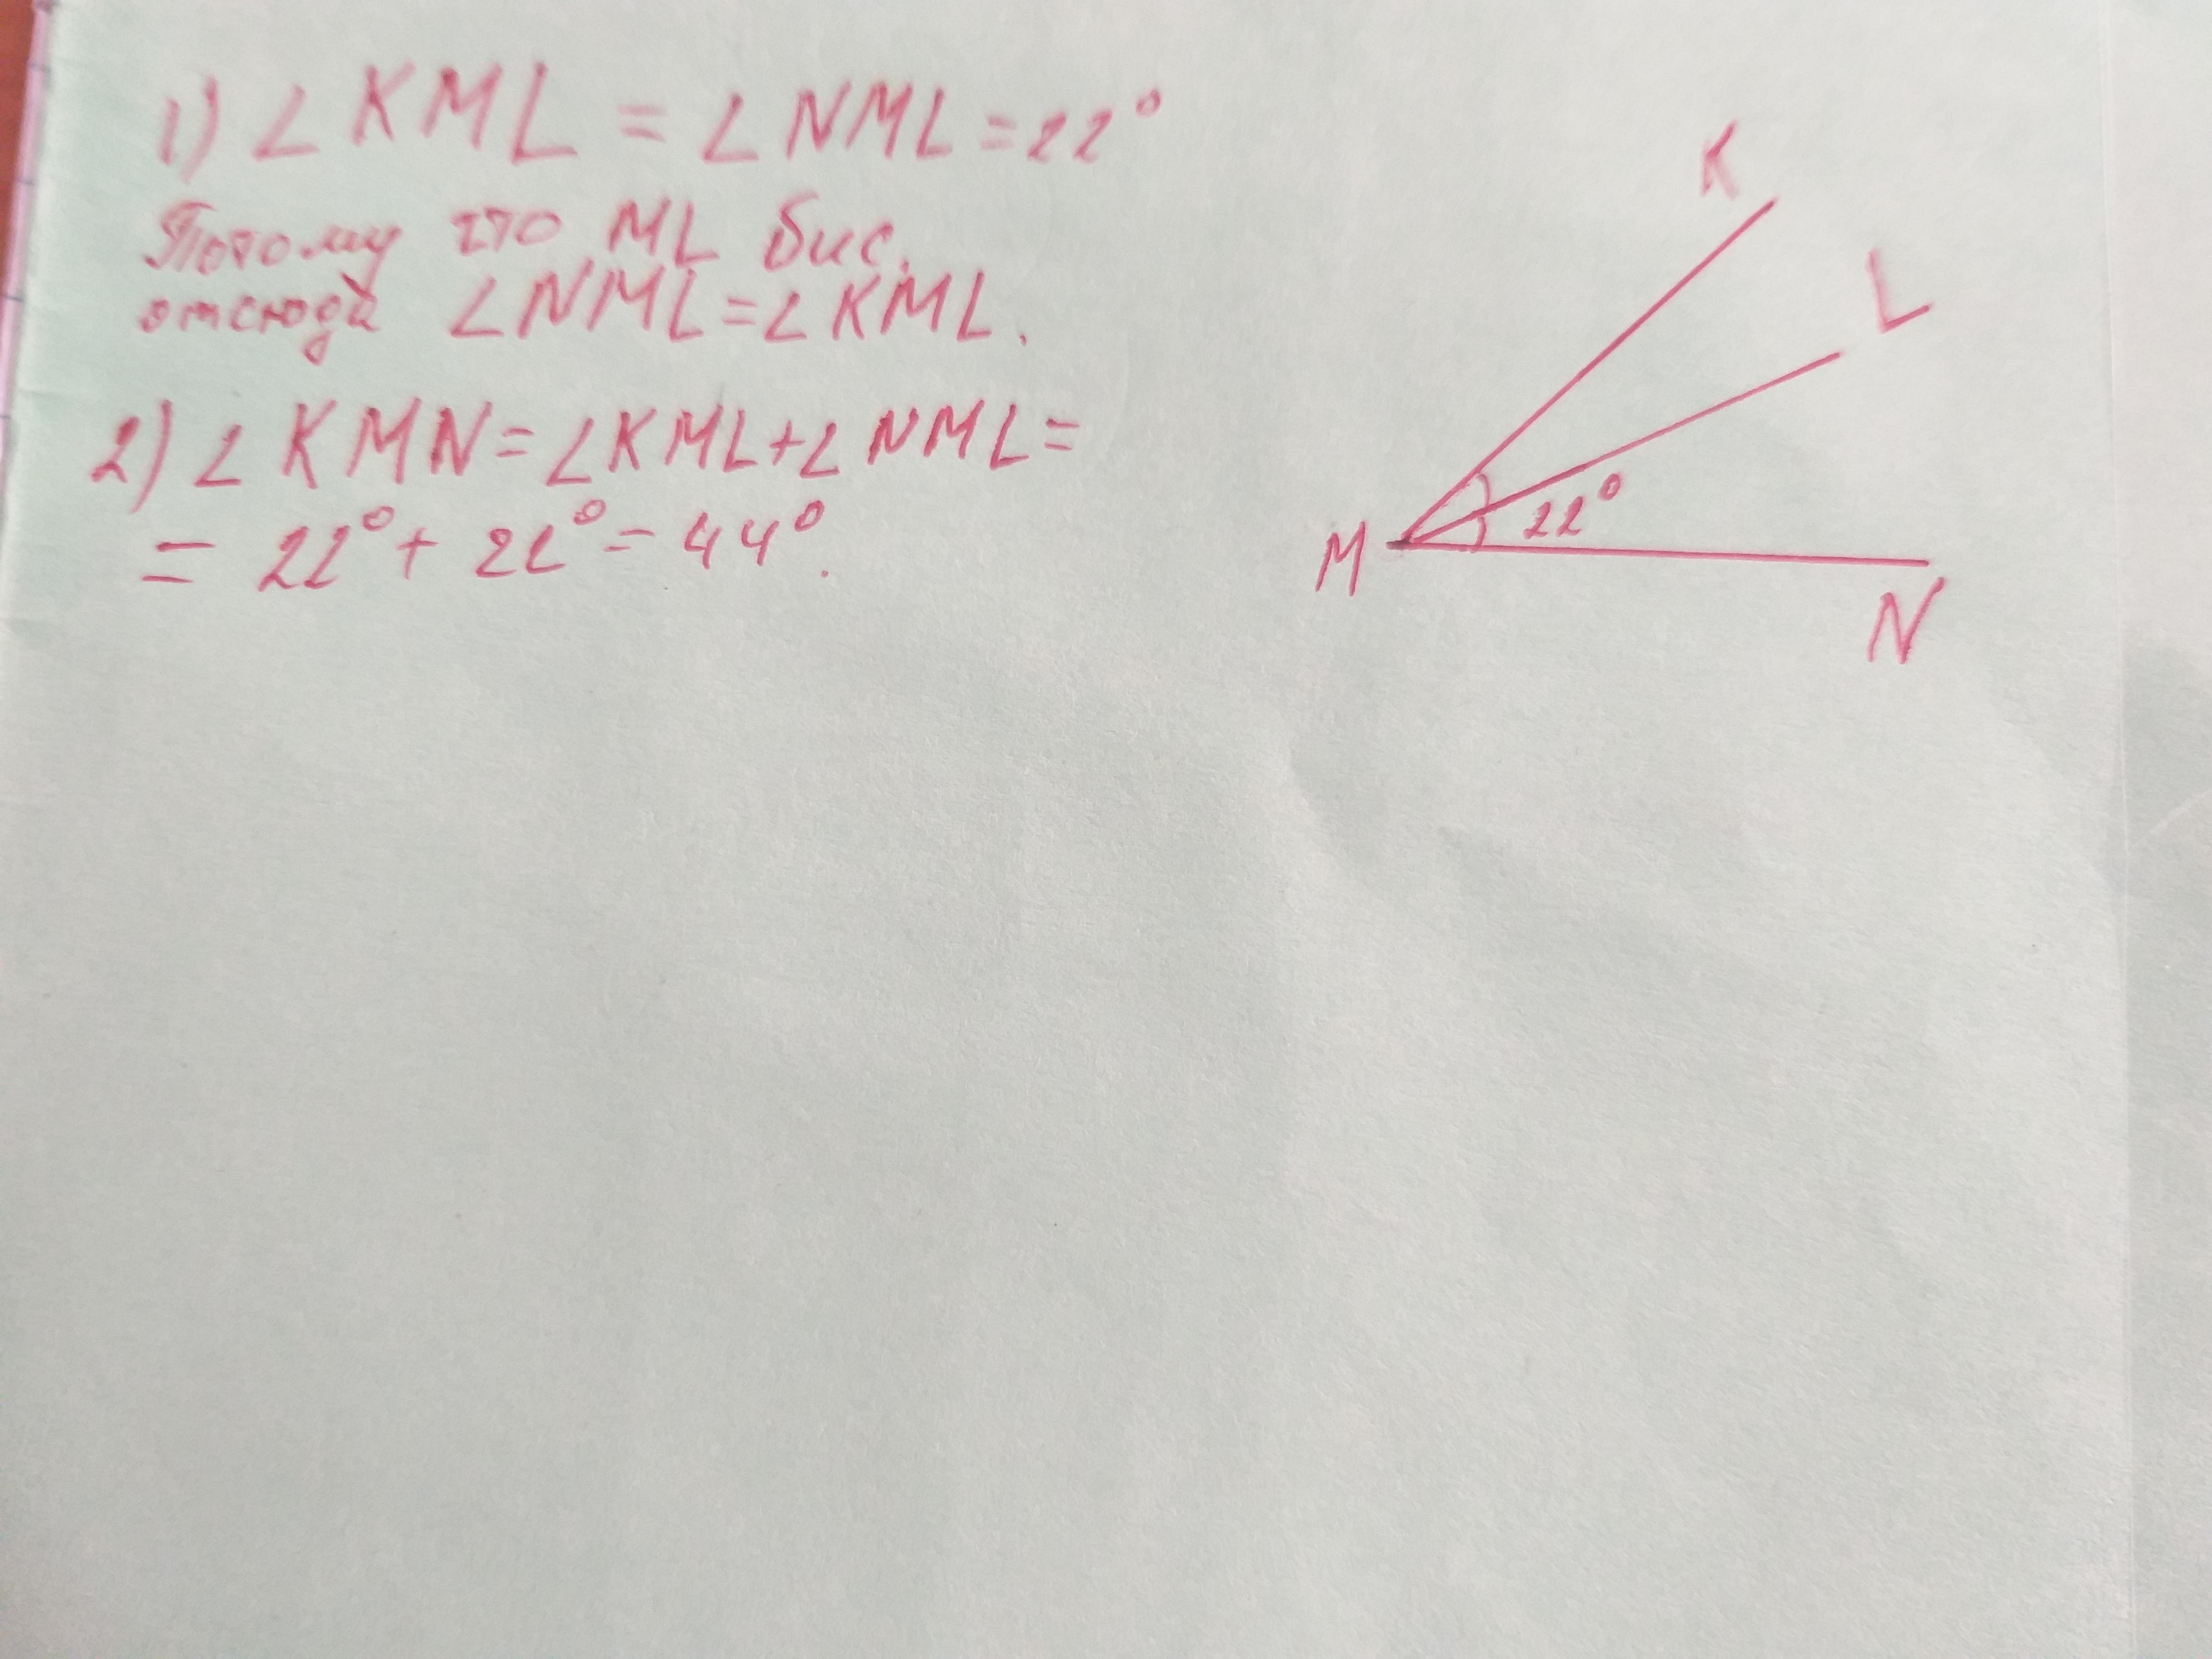 1) ∠KML = ∠NML = 22°
Потому что ML бис.
отсюда ∠NML = ∠KML.
2) ∠KMN = ∠KML + ∠NML =
= 22° + 22° = 44°.
K
L
22°
M
N